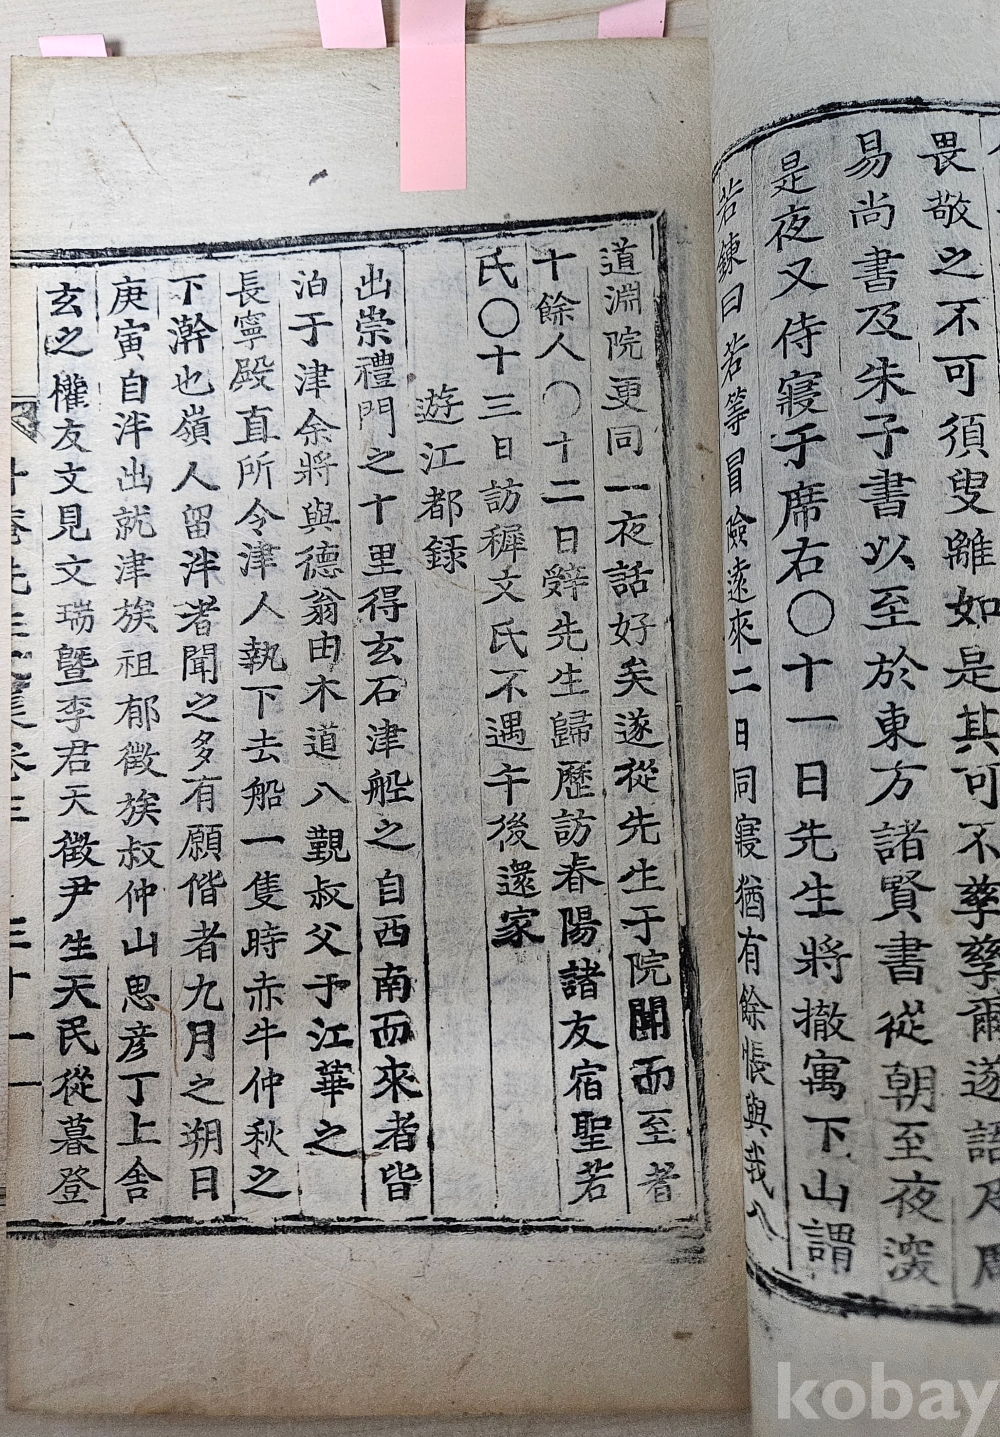 畏敬之不可須叟離如是其可不孳孳爾遂語及周
易尚書及朱子書以至於東方諸賢書從朝至夜深
是夜又侍寢于席右〇十一日先生將撤寓下山謂
若鍊曰若等冒險遠來二日同寢猶有餘悵與我入
道淵院更同一夜話好矣遂從先生于院聞而至者
十餘人〇十二日辭先生歸歷訪春陽諸友宿聖若
氏〇十三日訪穉文氏不遇午後還家
遊江都錄
出崇禮門之十里得玄石津船之自西南而來者皆
泊于津余將與德翁由木道入覲叔父于江華之
長寧殿直所令津人執下去船一隻時赤牛仲秋之
下澣也嶺人留泮者聞之多有願偕者九月之朔日
庚寅自泮出就津族祖郁徵族叔仲山思彦丁上舍
玄之權友文見文瑞曁李君天徵尹生天民從暮登
先生文集卷三
三十一
kobay